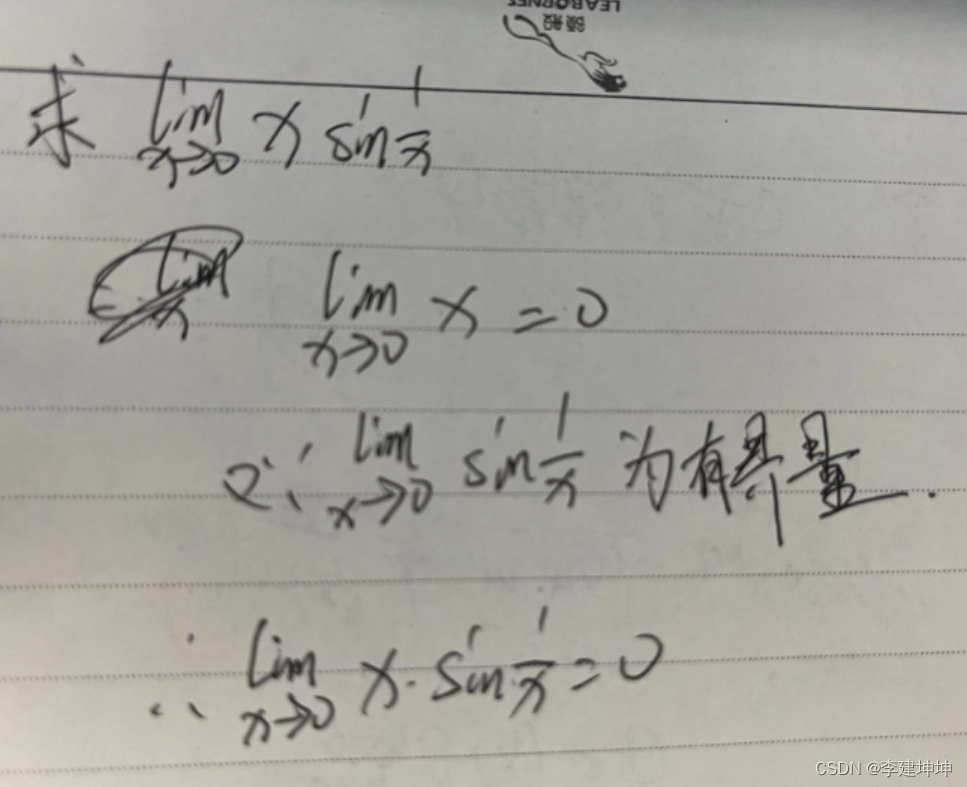 LEARORNES
领般
求 lim x→0 x sin 1/x
lim x→0 x = 0
又∵ lim x→0 sin 1/x 为有界量.
∴ lim x→0 x · sin 1/x = 0
CSDN @李建坤坤